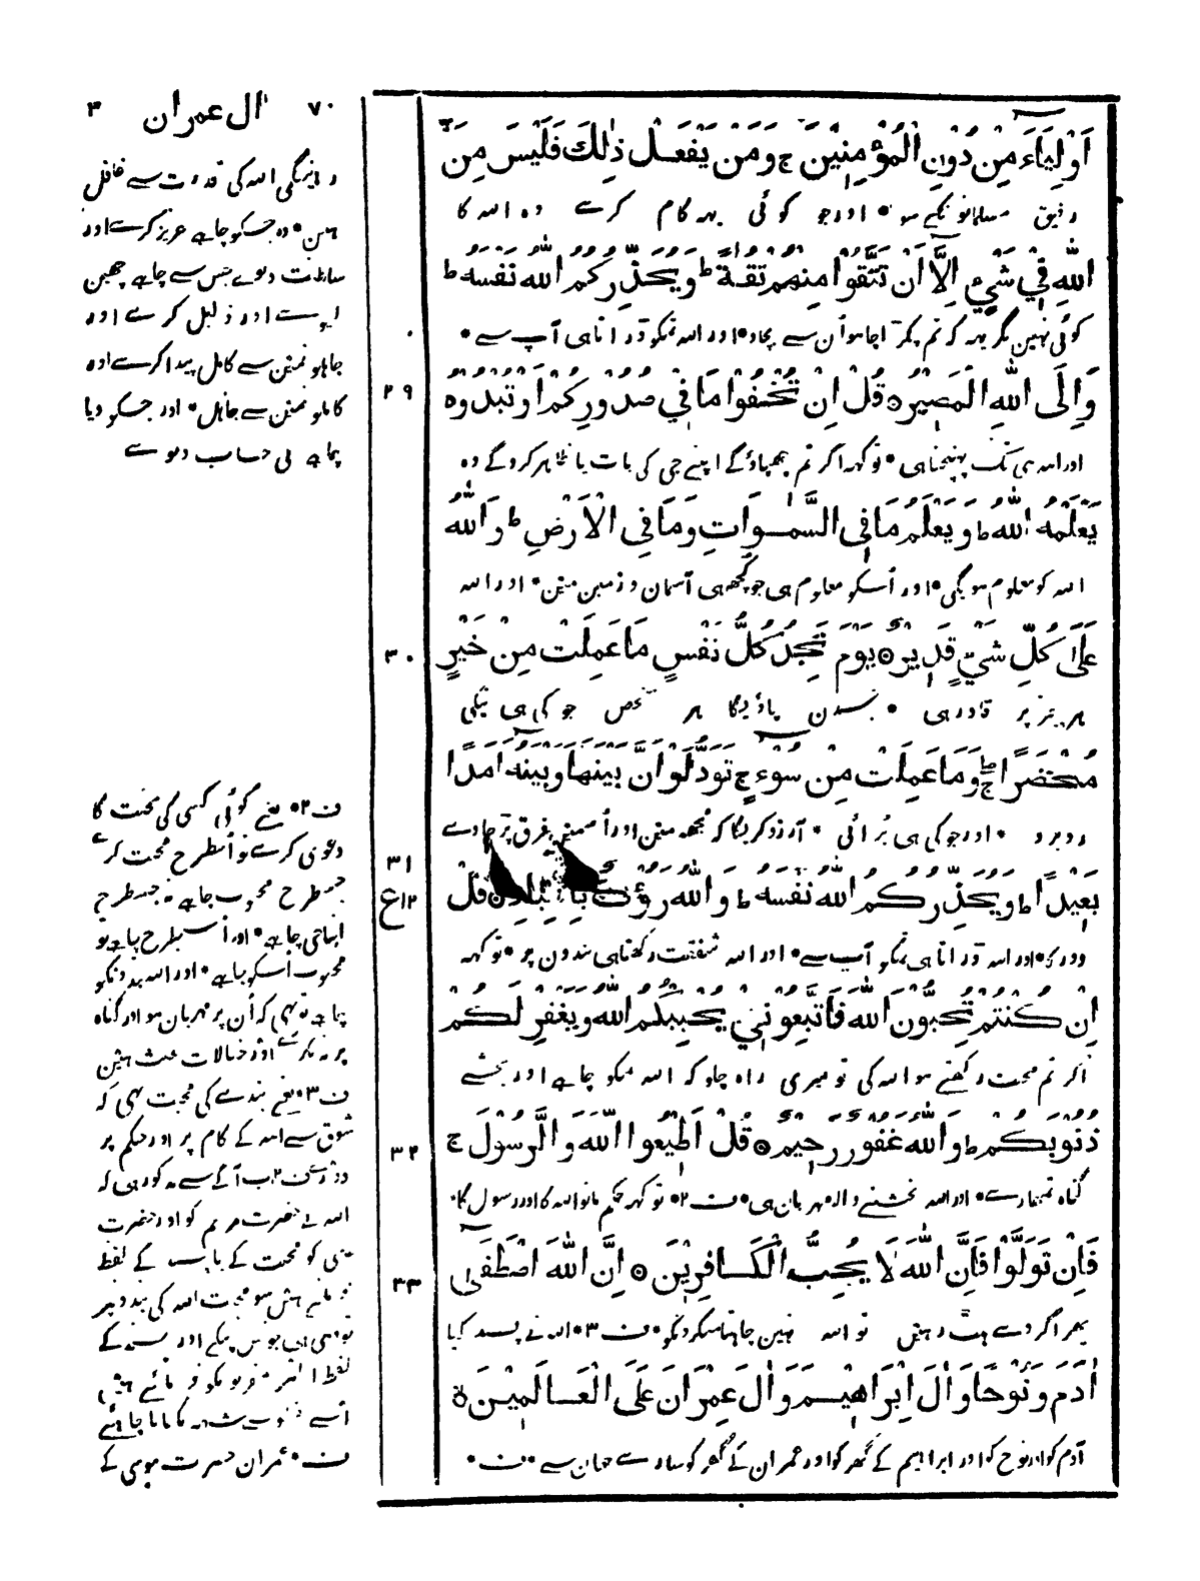 ٧٠ اٰل عمران ٣
اَوْلِيَاءَ مِنْ دُوْنِ الْمُؤْمِنِيْنَ ج وَمَنْ يَفْعَلْ ذٰلِكَ فَلَيْسَ مِنَ
رفیق مسلمانونکے سوا • اور جو کوئی یہہ کام کرے وہ اللہ کا
اللّٰهِ فِيْ شَيْءٍ اِلَّا اَنْ تَتَّقُوْا مِنْهُمْ تُقٰةً ط وَيُحَذِّرُكُمُ اللّٰهُ نَفْسَهُ ط
کوئی نہین مگر یہہ کہ تم پکڑا چاہو اُن سے بچاو • اور اللہ تمکو ڈراتا ہی آپ سے •
٢٩
وَاِلَى اللّٰهِ الْمَصِيْرُ ۝ قُلْ اِنْ تُخْفُوْا مَا فِيْ صُدُوْرِكُمْ اَوْ تُبْدُوْهُ
اور اللہ ہی تک پہنچنا ہی • تو کہہ اگر تم چھپاؤگے اپنے جی کی بات یا ظاہر کروگے وہ
يَعْلَمْهُ اللّٰهُ ط وَيَعْلَمُ مَا فِي السَّمٰوَاتِ وَمَا فِي الْاَرْضِ ط وَاللّٰهُ
اللہ کو معلوم ہوگی • اور اُسکو معلوم ہی جو کچھہ ہی آسمان و زمین مین • اور اللہ
٣٠
عَلٰى كُلِّ شَيْءٍ قَدِيْرٌ ۝ يَوْمَ تَجِدُ كُلُّ نَفْسٍ مَا عَمِلَتْ مِنْ خَيْرٍ
ہر چیز پر قادر ہی • جسدن پاویگا ہر شخص جو کی ہی نیکی
مُحْضَرًا ج وَمَا عَمِلَتْ مِنْ سُوْءٍ ج تَوَدُّ لَوْ اَنَّ بَيْنَهَا وَبَيْنَهُ اَمَدًا
روبرو • اور جو کی ہی بُرائی • آرزو کریگا کہ مجھہ مین اور اُسمین فرق پڑ جاوے
٣١
١٢ع
بَعِيْدًا ط وَيُحَذِّرُكُمُ اللّٰهُ نَفْسَهُ ط وَاللّٰهُ رَؤُفٌ بِالْعِبَادِ ۝ قُلْ
دور کا • اور اللہ ڈراتا ہی تمکو آپ سے • اور اللہ شفقت رکھتا ہی بندون پر • تو کہہ
اِنْ كُنْتُمْ تُحِبُّوْنَ اللّٰهَ فَاتَّبِعُوْنِيْ يُحْبِبْكُمُ اللّٰهُ وَيَغْفِرْ لَكُمْ
اگر تم محبت رکھتے ہو اللہ کی تو میری راہ چلو کہ اللہ تمکو چاہے اور بخشے
٣٢
ذُنُوْبَكُمْ ط وَاللّٰهُ غَفُوْرٌ رَحِيْمٌ ۝ قُلْ اَطِيْعُوا اللّٰهَ وَالرَّسُوْلَ ج
گناہ تمہارے • اور اللہ بخشنے والا مہربان ہی • ف ٢ • تو کہہ حکم مانو اللہ کا اور رسول کا •
٣٣
فَاِنْ تَوَلَّوْا فَاِنَّ اللّٰهَ لَا يُحِبُّ الْكَافِرِيْنَ ۝ اِنَّ اللّٰهَ اصْطَفٰى
پھر اگر وے ہٹ رہین تو اللہ نہین چاہتا منکرونکو • ف ٣ • اللہ نے پسند کیا
اٰدَمَ وَنُوْحًا وَاٰلَ اِبْرَاهِيْمَ وَاٰلَ عِمْرَانَ عَلَى الْعَالَمِيْنَ ۝
آدم کو اور نوح کو اور ابراہیم کے گھر کو اور عمران کے گھر کو سارے جہان سے • ف •
بزرگی اللہ کی قدرت سے غافل
ہین • وہ جسکو چاہے عزیز کرے اور
سلطنت دیوے جس سے چاہے چھین
لیوے اور ذلیل کرے اور
جاہلونمین سے کامل پیدا کرے اور
کاملونمین سے جاہل • اور جسکو دیا
چاہے بی حساب دیوے
ف ٢ • یعنے کوئی کسی کی محبت کا
دعوی کرے تو اُسطرح محبت کرے
جسطرح محبوب چاہے نہ جسطرح
اپنا جی چاہے • اور اسیطرح چاہے تو
محبوب اسکو چاہے • اور اللہ بندونکو
چاہے تو یہی کہ اُن پر مہربان ہو اور گناہ
پر نہ پکڑے اور خیالات عبث ہین
ف ٣ • یعنے بندے کی محبت یہی کہ
شوق سے اللہ کے کام پر اور حکم پر
دوڑے ف ٢ اب آگے سے مذکور ہی کہ
اللہ نے حضرت مریم کو اور حضرت
عیسی کو محبت کے لفظ
اللہ کی بندونپر
ف • عمران حضرت موسی کے